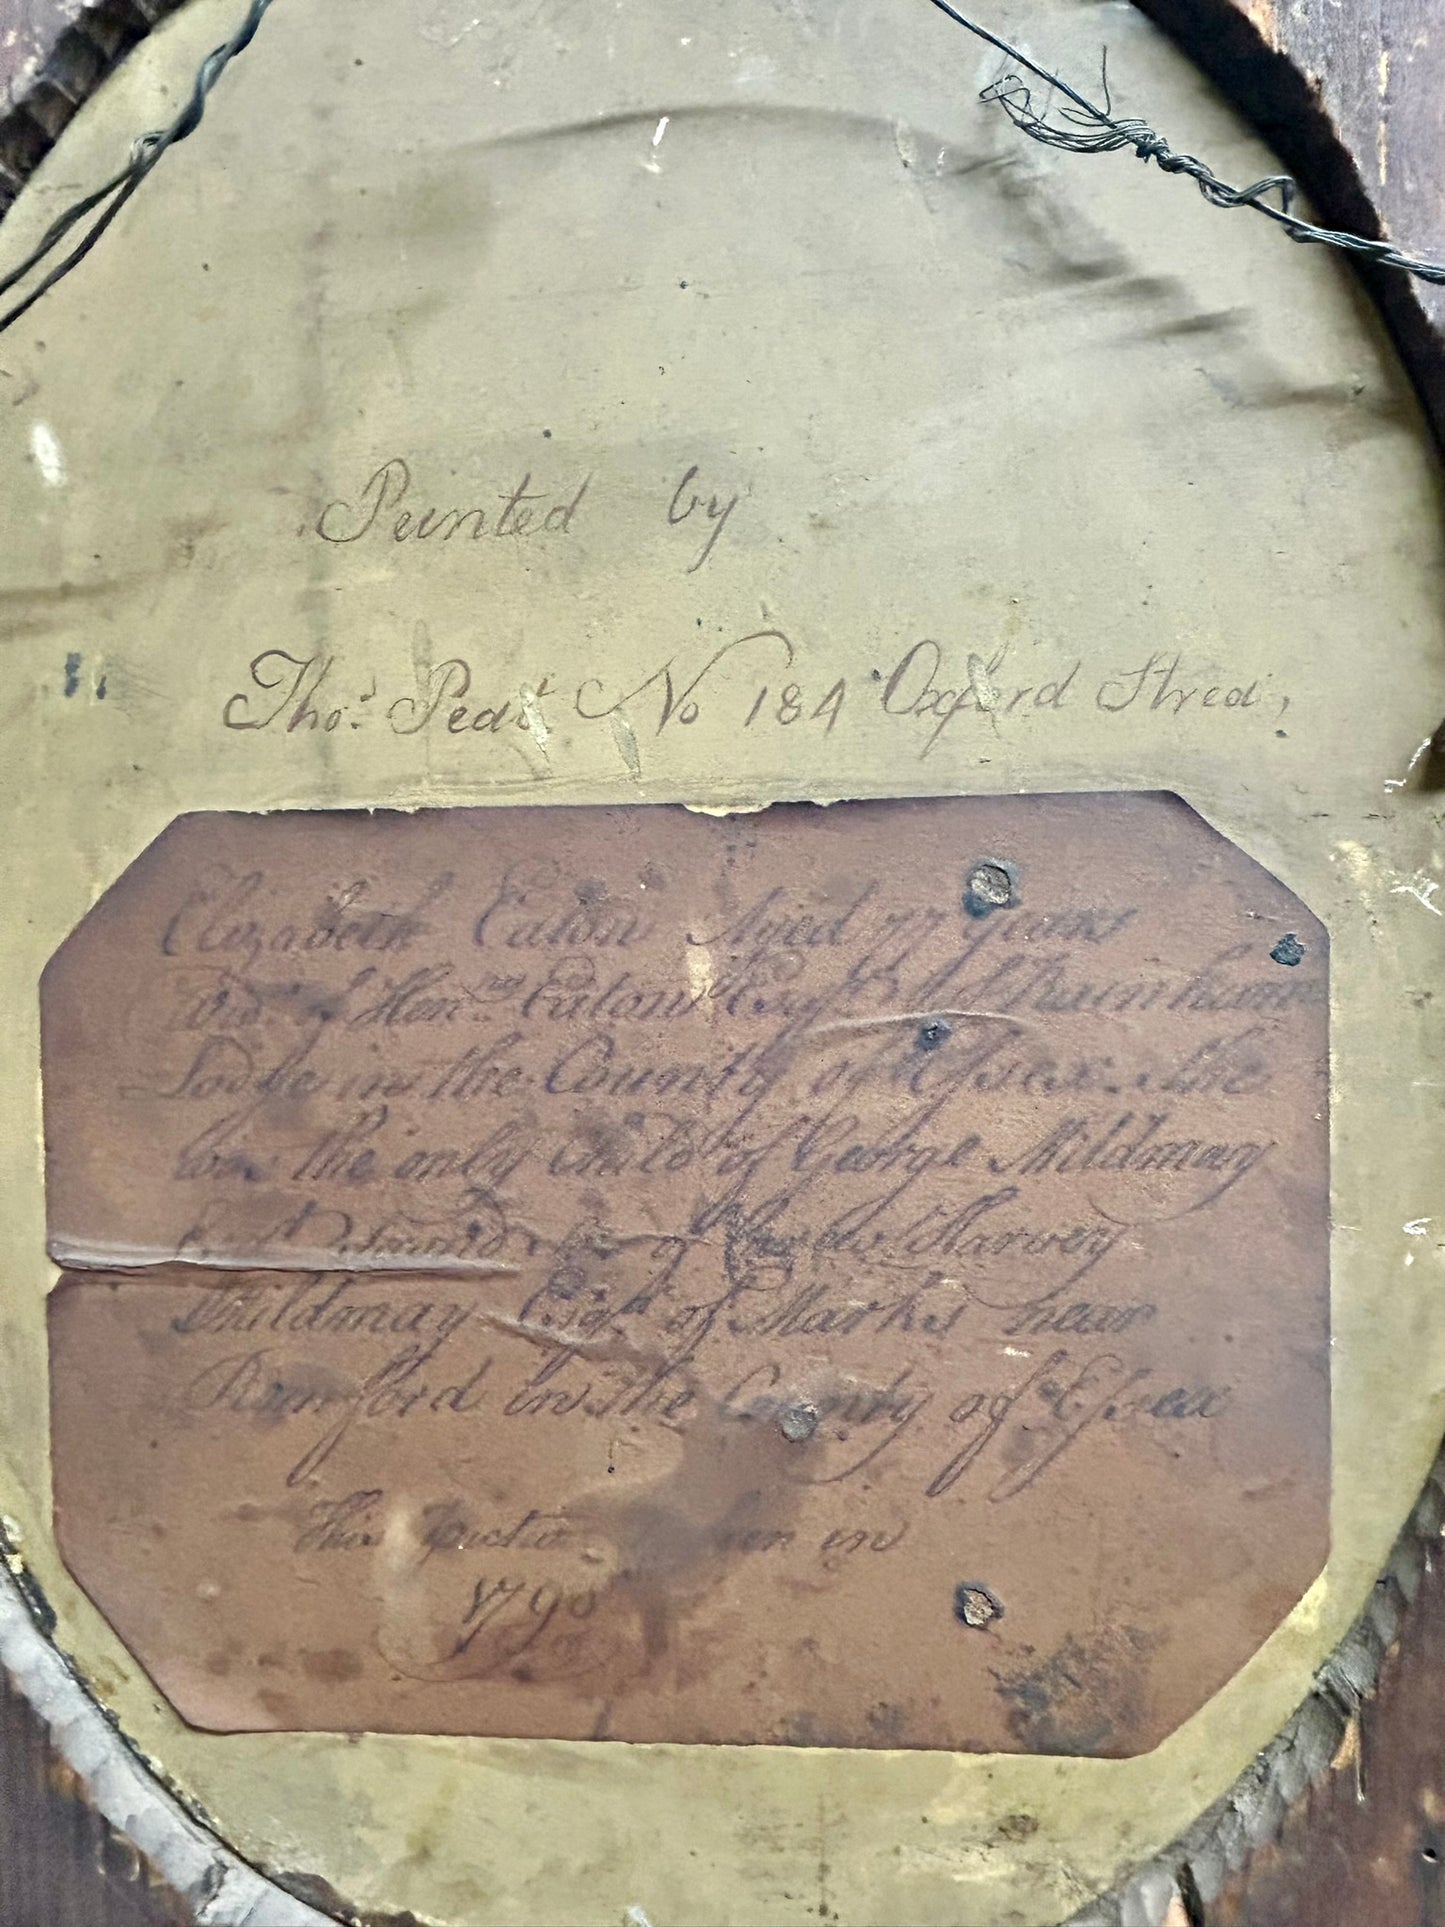 Peinted by
Thos. Peat No 184 Oxford Street,
Elizabeth Eaton Aged 77 years
Wid. of Henry Eaton Esqr. of Rainham
Lodge in the County of Essex. She
was the only Child of George Mildmay
Esqr. of Harvey
Mildmay Esqr. of Marks near
Rumford in the County of Essex
This in
1790